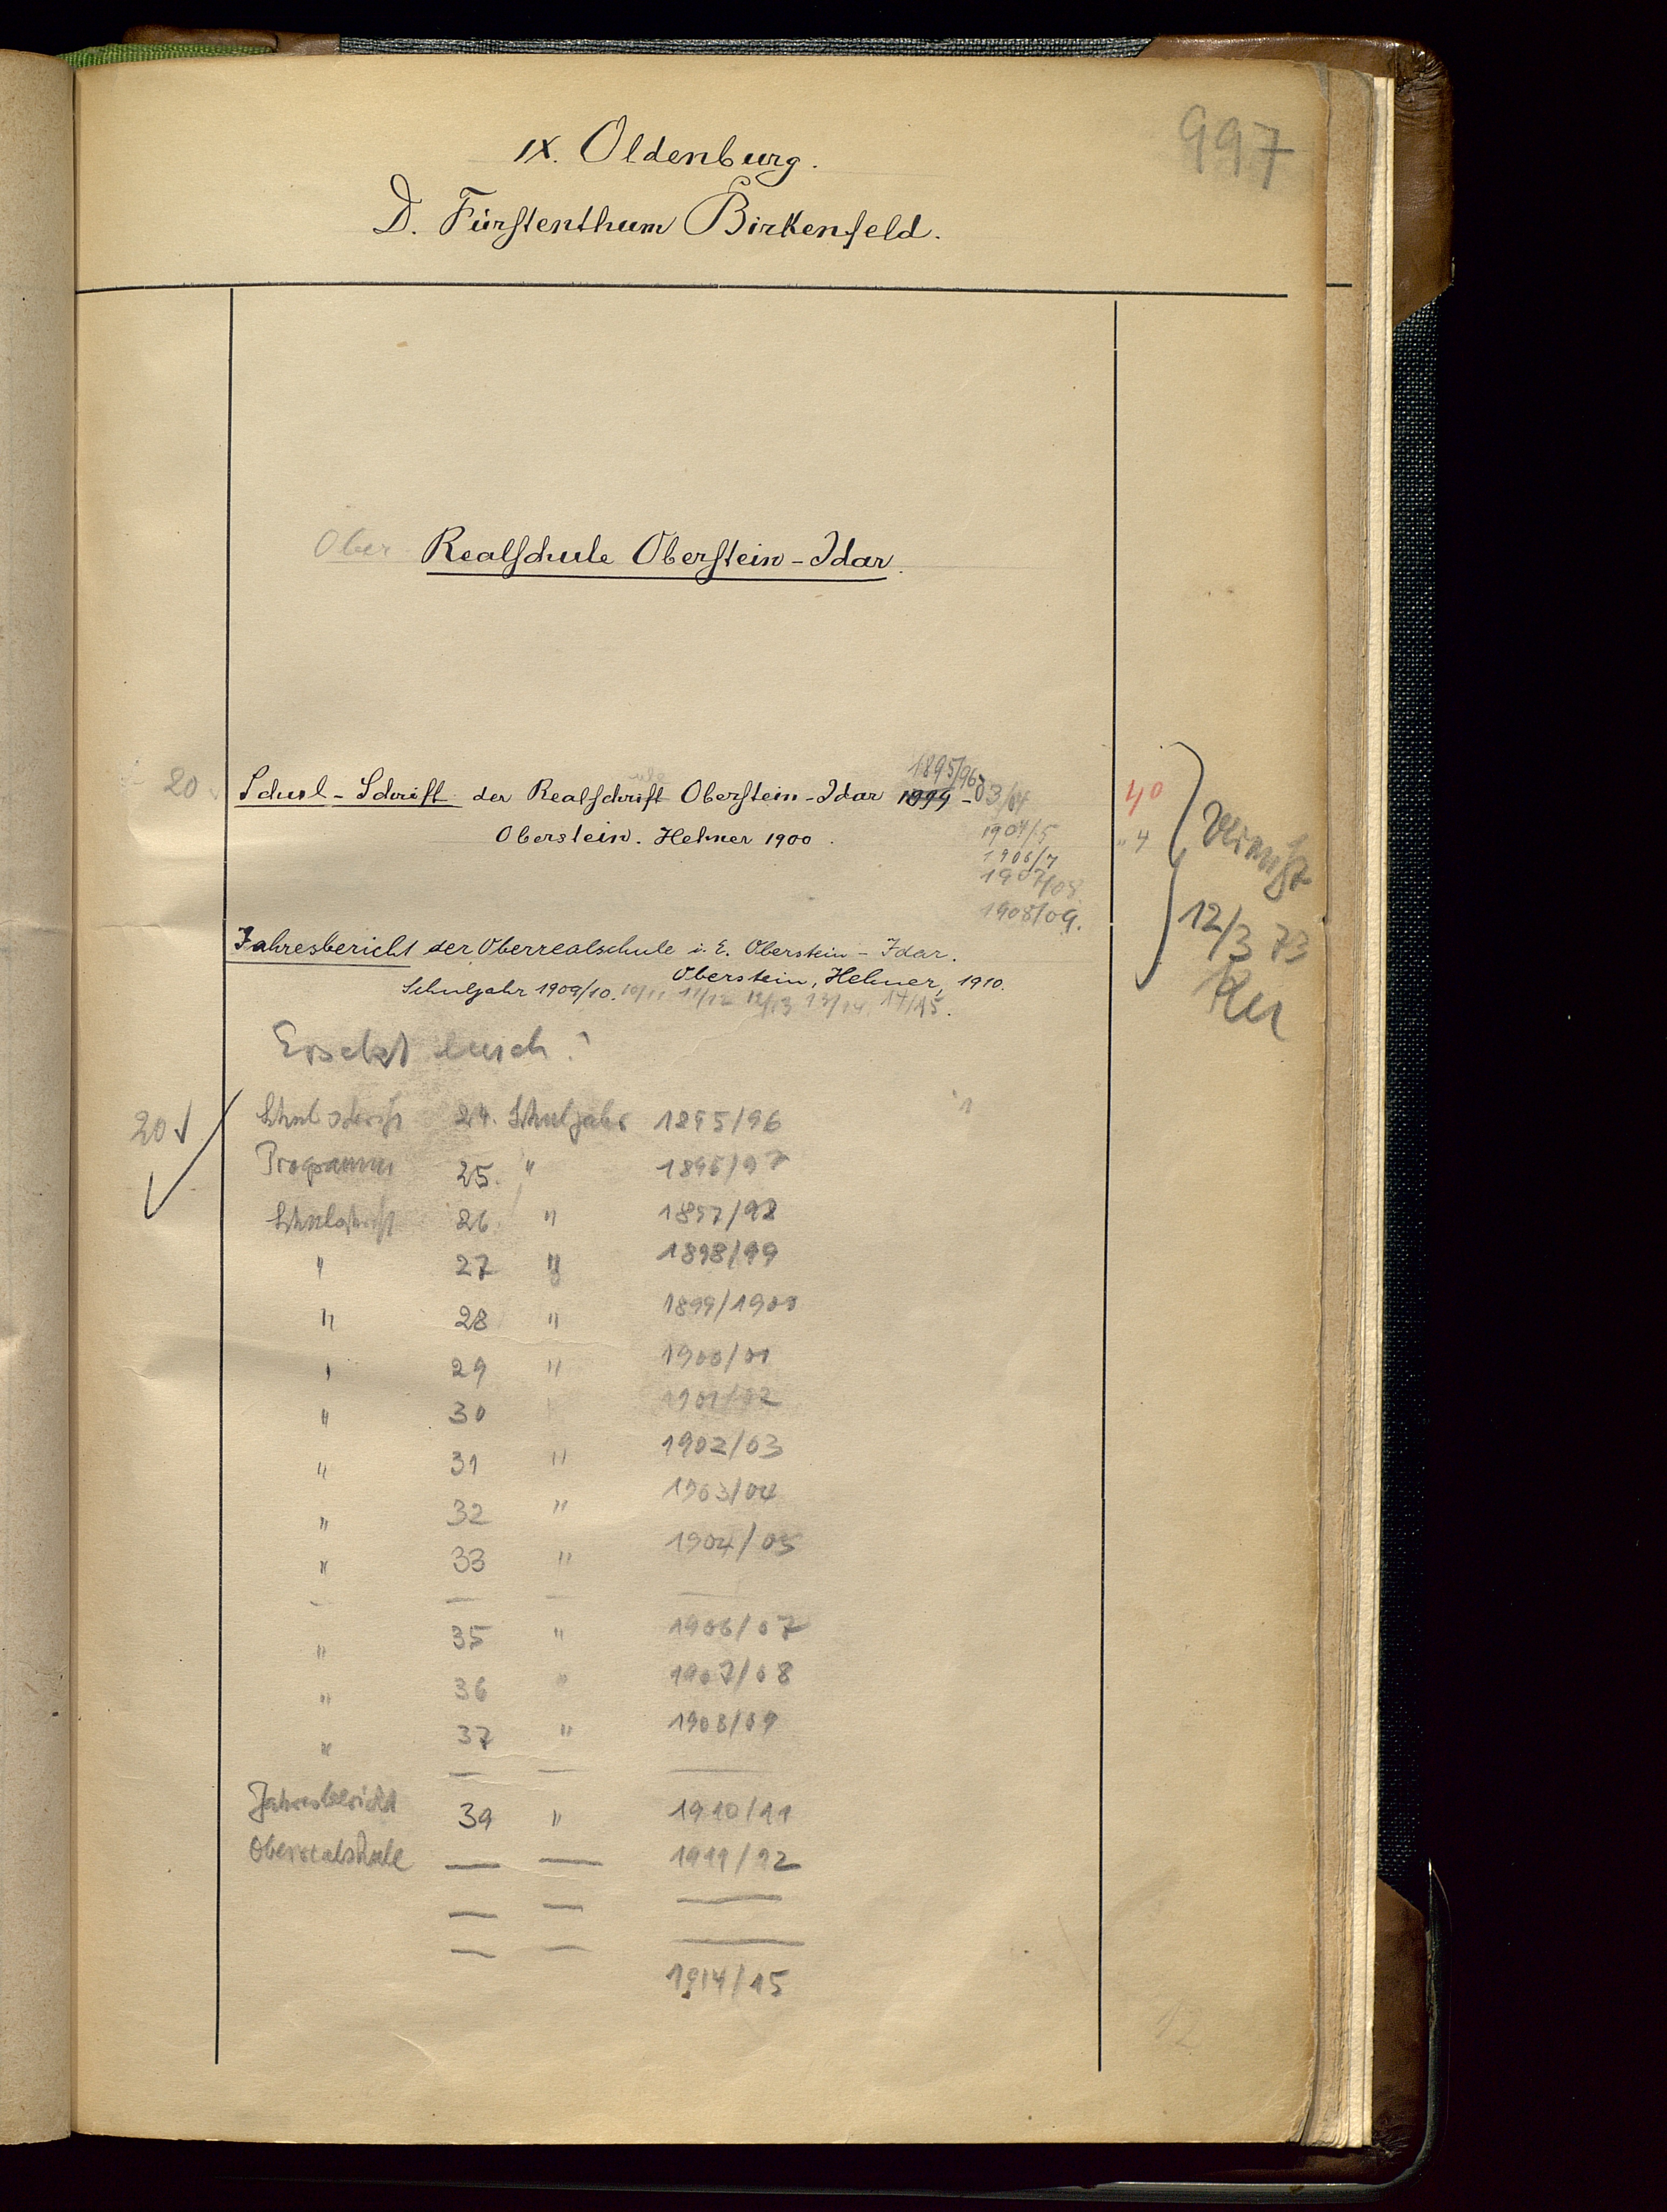 997
IX. Oldenburg.
D. Fürstenthum Birkenfeld.
Ober Realschule Oberstein-Idar.
1895/96
20 Schul-Schrift der Realschrift Oberstein-Idar 1899-03/04 40
ule
Oberstein. Hehner 1900. 1904/5 "4
1906/7
1907/08
1908/09.
Vermißt
12/3 73
Jahresbericht der Oberrealschule i. E. Oberstein-Idar.
Oberstein, Hehner, 1910.
Schuljahr 1909/10. 10/11 11/12 12/13 13/14 14/15.
Ersetzt durch:
20 Schulschrift 24. Schuljahr 1895/96
Programm 25. " 1896/97
Schulschrift 26. " 1897/98
" 27 " 1898/99
" 28 " 1899/1900
" 29 " 1900/01
" 30 1901/02
" 31 " 1902/03
" 32 " 1903/04
" 33 " 1904/05
— — — —
" 35 " 1906/07
" 36 " 1907/08
" 37 " 1908/09
— — —
Jahresbericht 39 " 1910/11
Oberrealschule — — 1911/12
— — —
— — —
1914/15
12